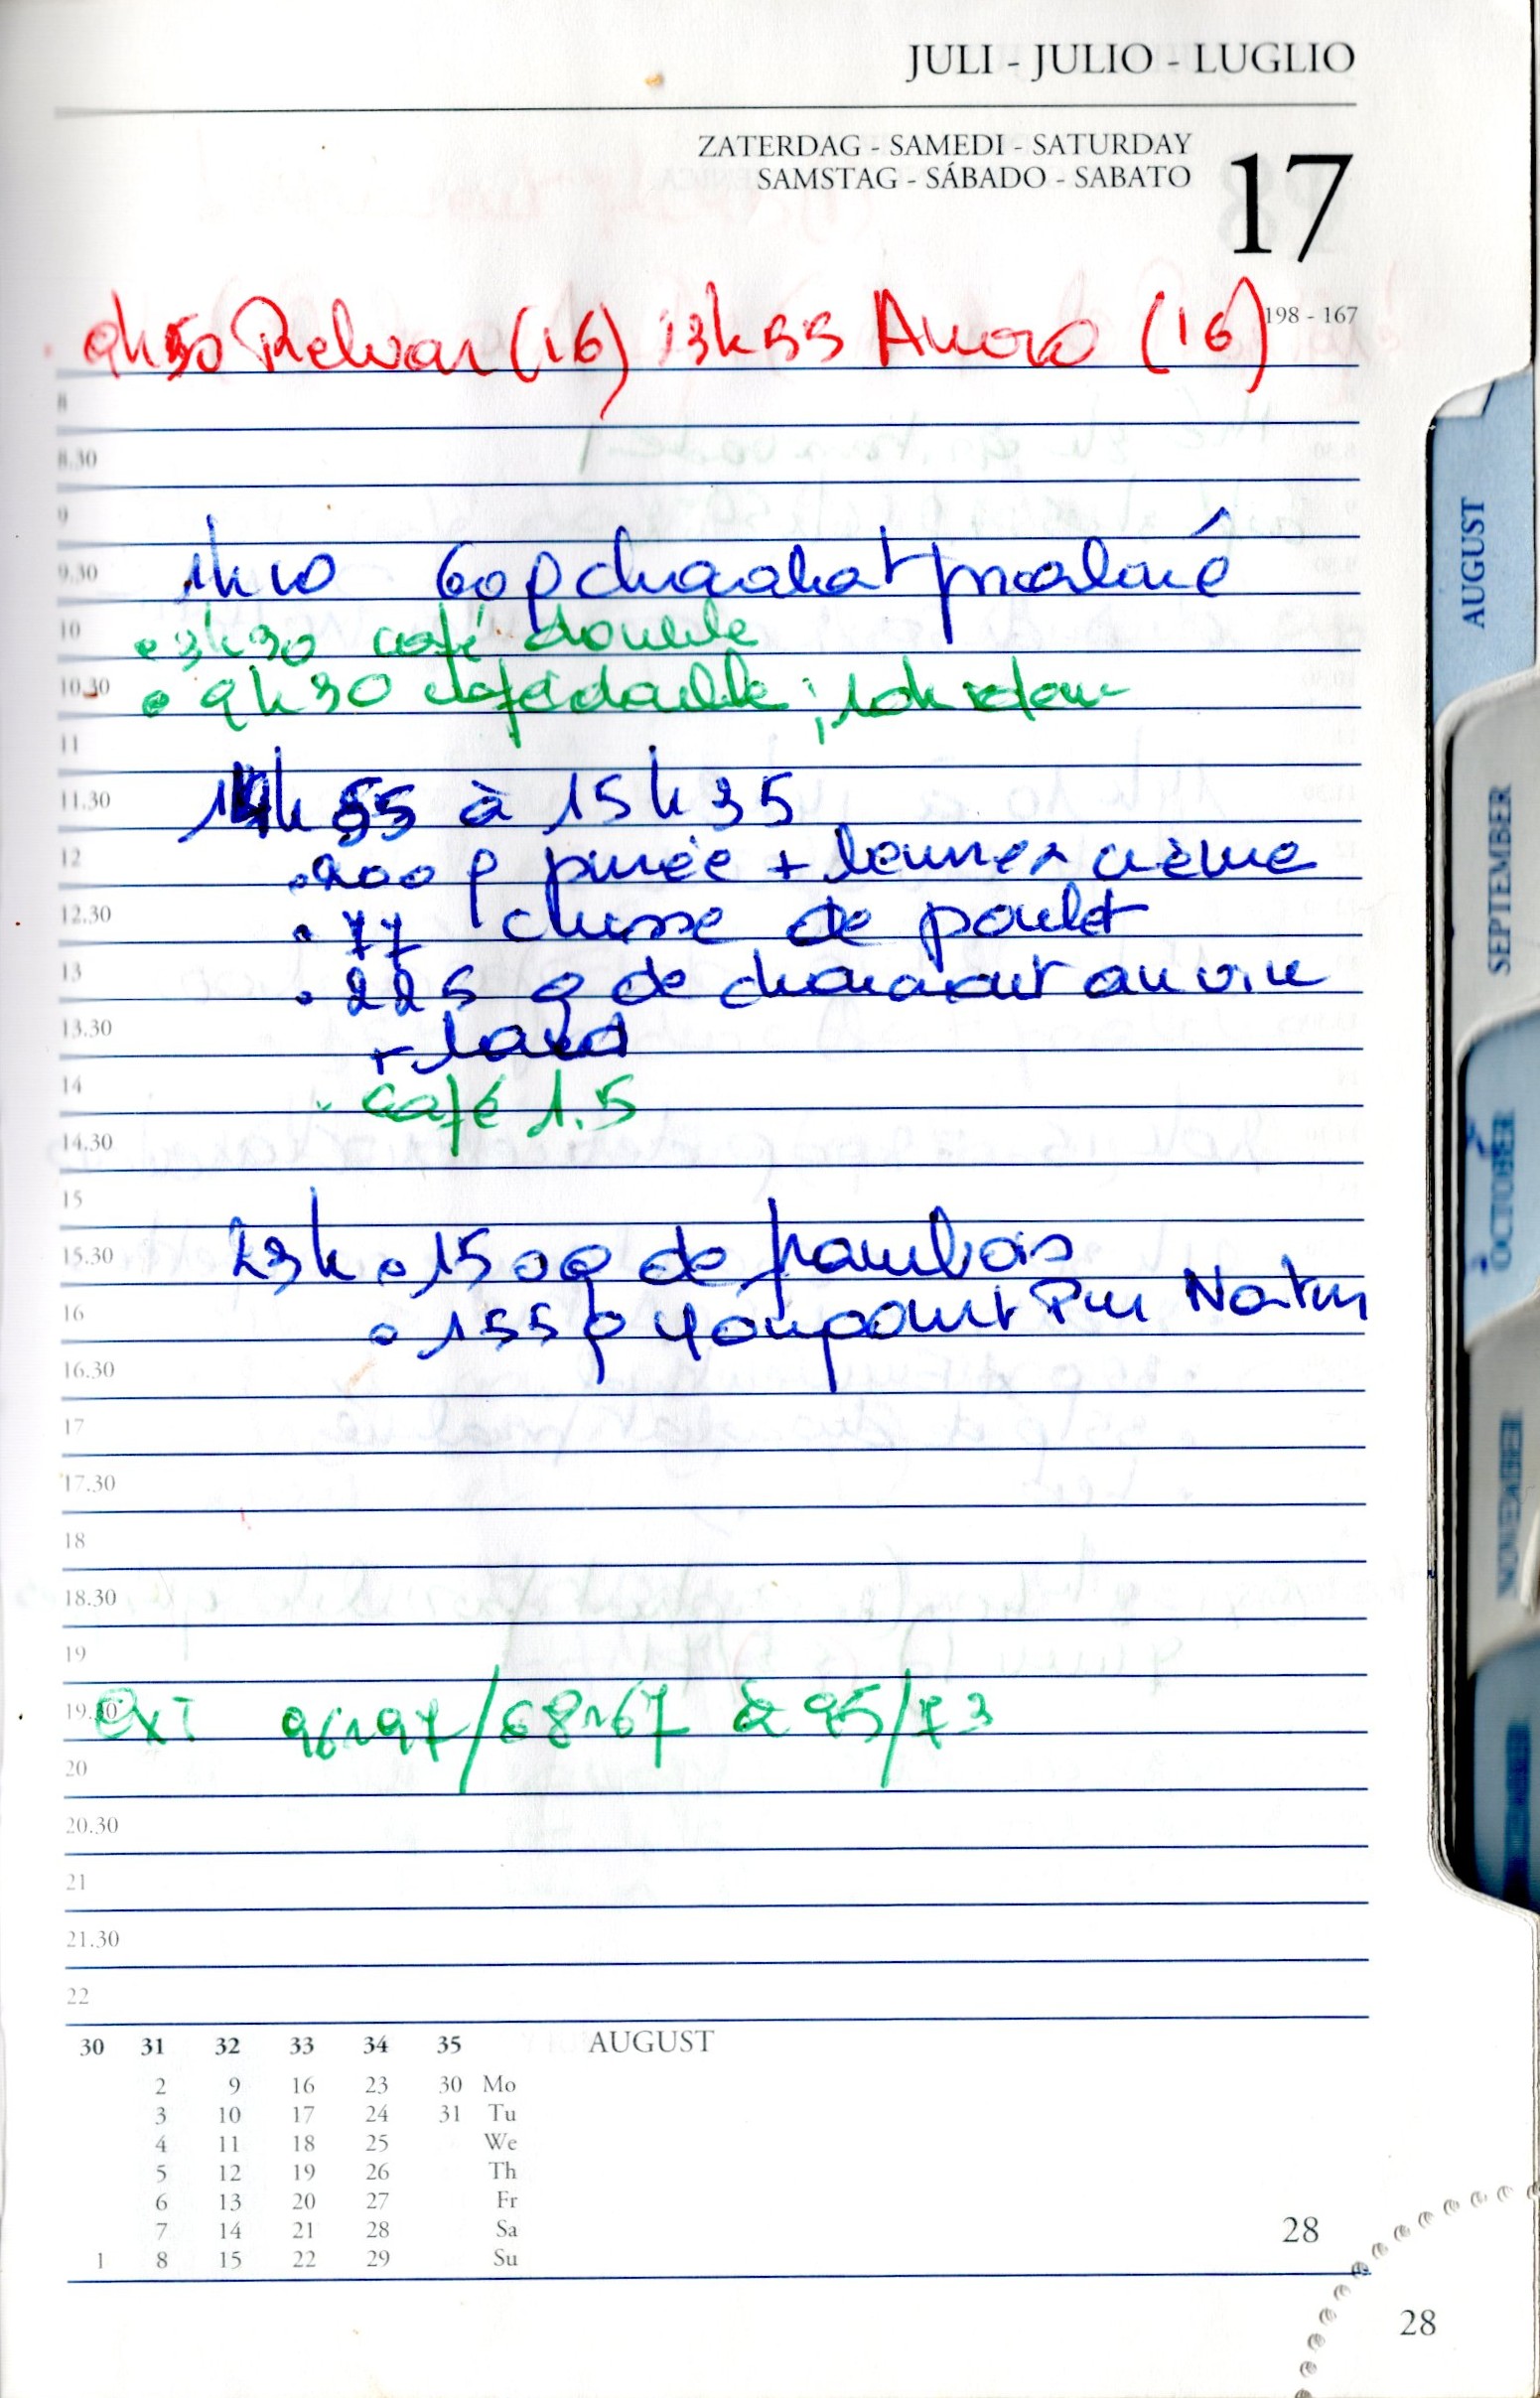 JULI - JULIO - LUGLIO
ZATERDAG - SAMEDI - SATURDAY
SAMSTAG - SÁBADO - SABATO
17
198 - 167
9h50 Relvar (16) 13h55 (16)
8
8.30
9
9.30 1h10 60g praliné
10 3h30 café double
10.30 9h30 café double ; 10h idem
11
11.30 14h55 à 15h35
12 200 g purée + beurre + crème
12.30 77 cuisse de poulet
13 225 g de au vin
13.30 + lard
14 café 1.5
14.30
15
15.30 23h 150g de frambois
16 155g Pur Natur
16.30
17
17.30
18
18.30
19
19.30 Oxi 96~97/68~67 & 95/73
20
20.30
21
21.30
22
30 31 32 33 34 35 AUGUST
2 9 16 23 30 Mo
3 10 17 24 31 Tu
4 11 18 25 We
5 12 19 26 Th
6 13 20 27 Fr
7 14 21 28 Sa
1 8 15 22 29 Su
28
28
AUGUST
SEPTEMBER
OCTOBER
NOVEMBER